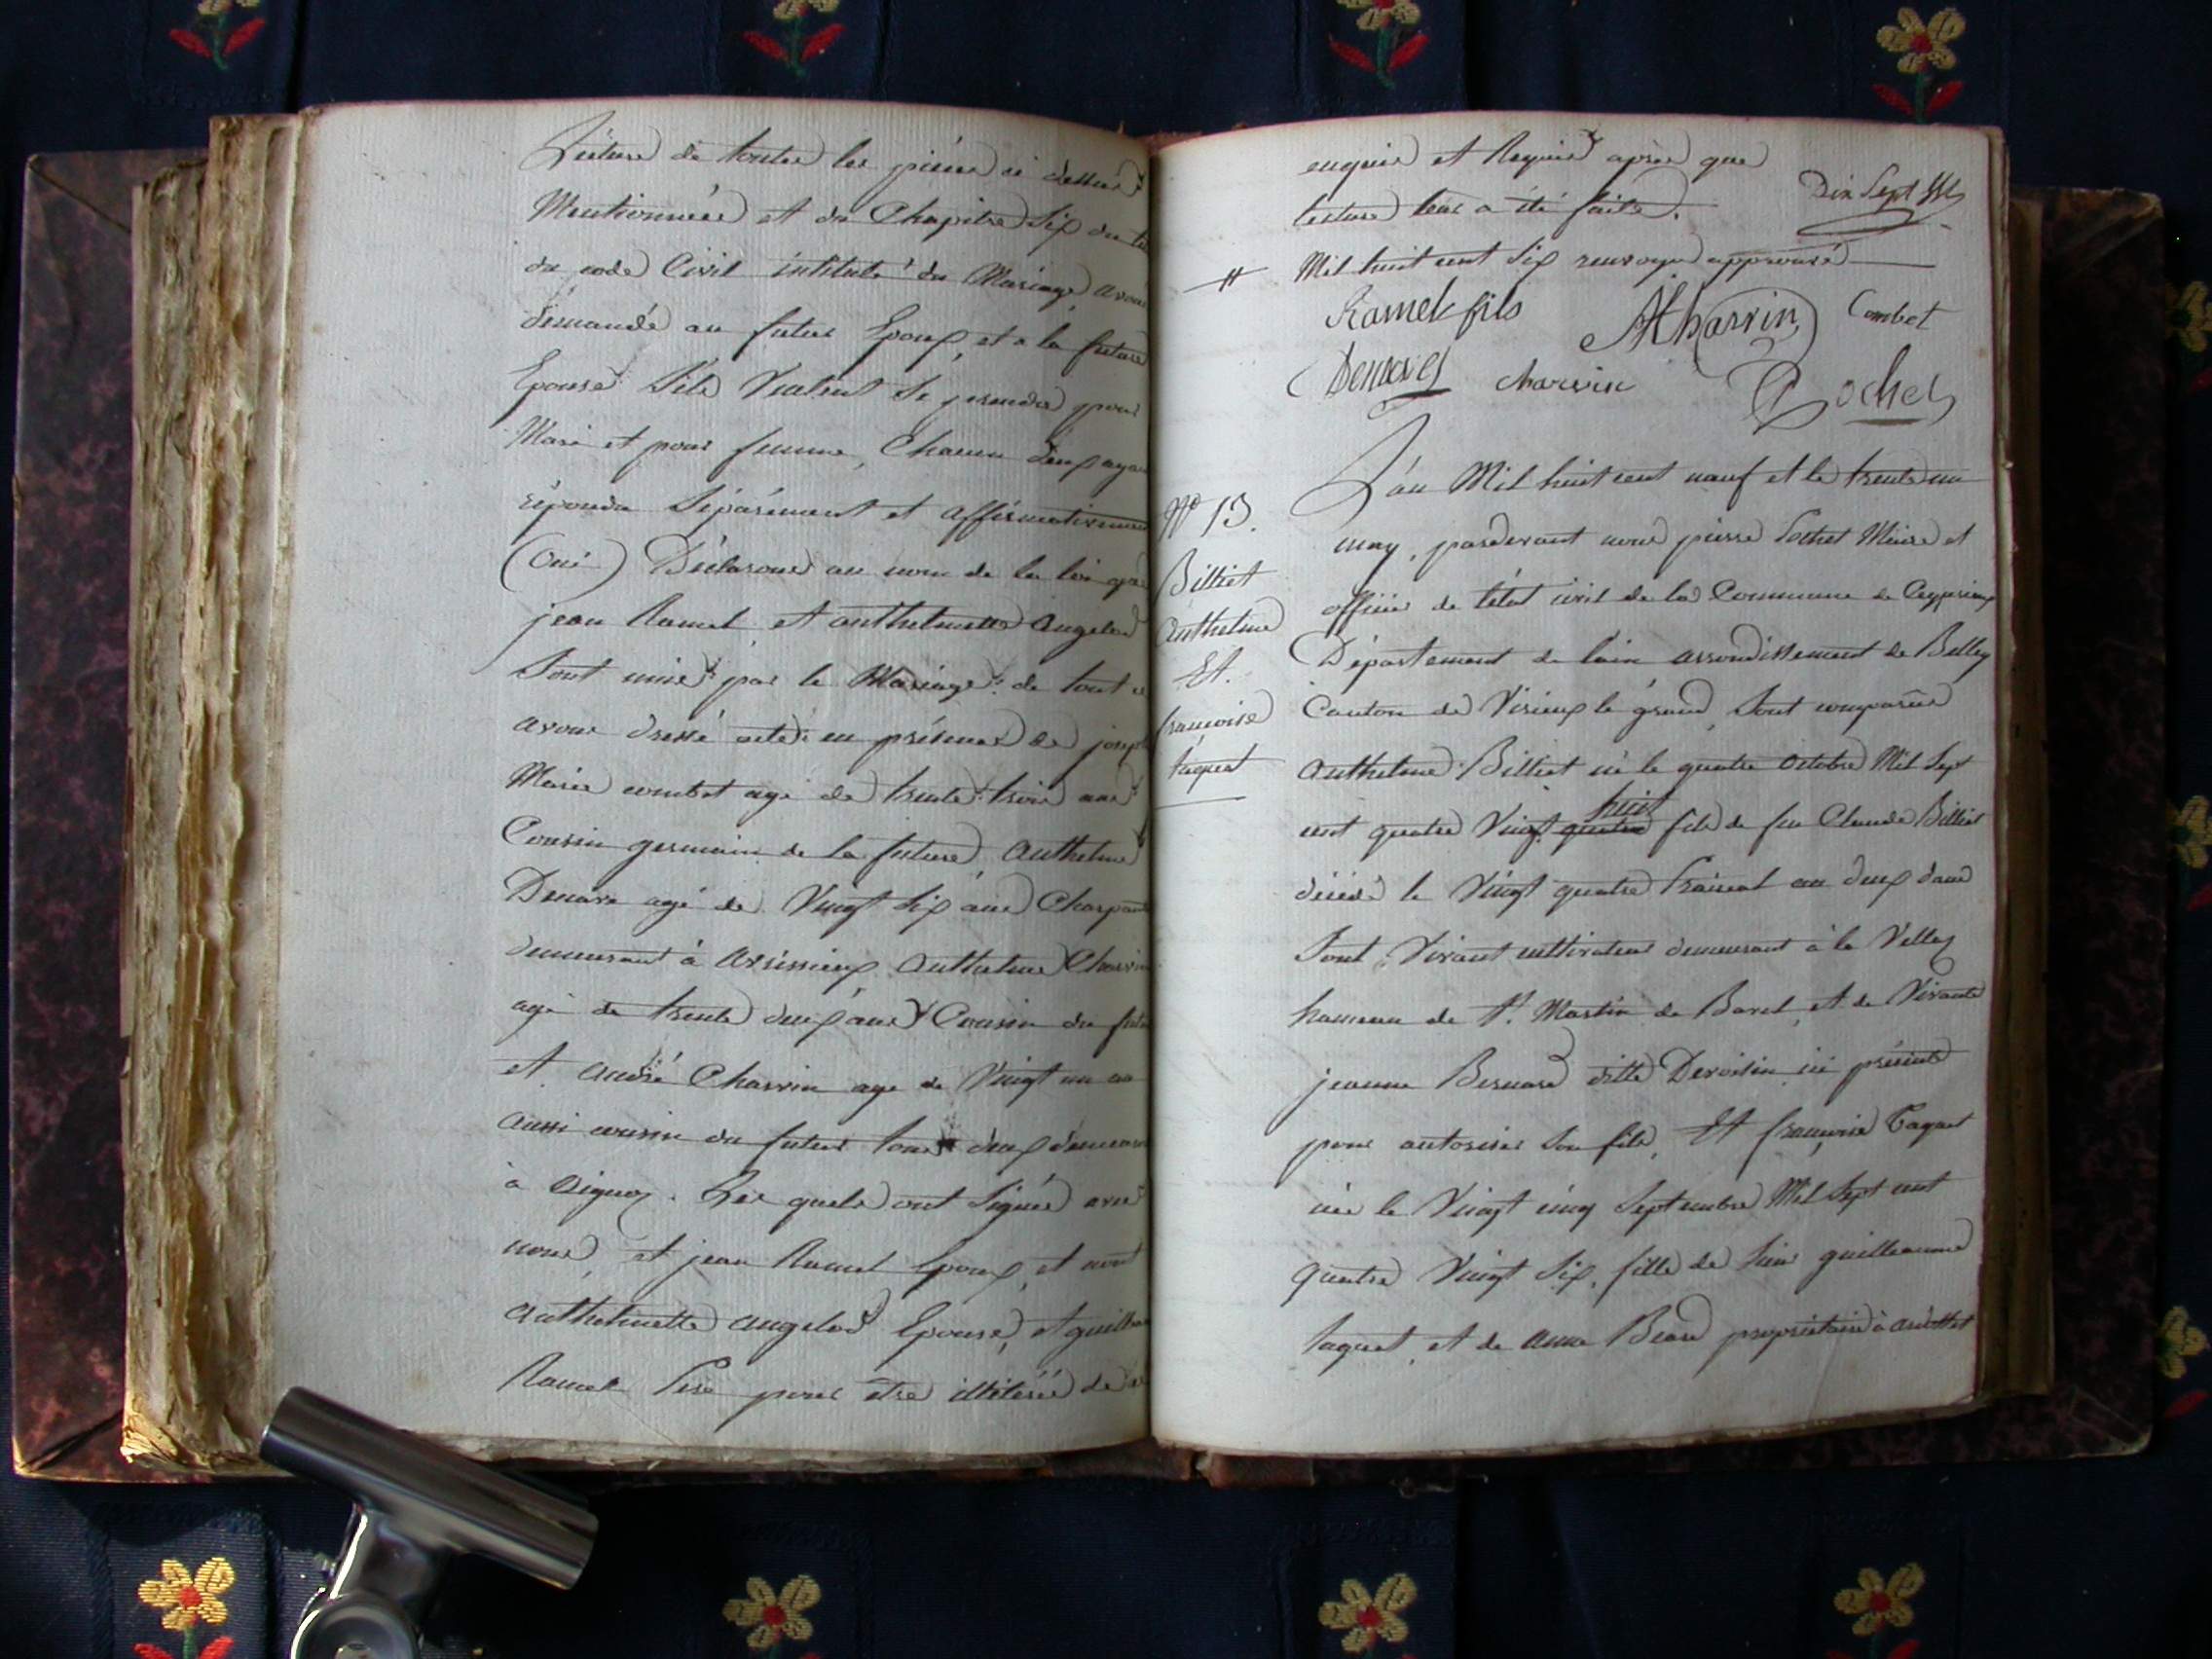 Lecture de toutes les pièces ci dessus
Mentionnées et du Chapitre Six du
du code Civil intitulé du Mariage avons
demandé au futur Epoux, et a la future
Epouse S'ils Veulent Se prendre pour
Mari et pour femme, Chacun d'eux ayant
répondu Séparément et affirmativement
(Oui) Déclarons au nom de la loi que
jean Ramel et anthelmette Angelod
Sont unis par le Mariage. de tout ce
avons dressé acte: en présence de joseph
Marie combet agé de trente trois ans
Cousin germain de la future Anthelme
Demare agé de Vingt Six ans Charpent
demeurant à arsissieux, Anthelme Charvin
agé de trente deux ans Cousin du futur
et André Charvin age de Vingt un an
aussi cousin du futur tous deux demeurant
à Oignoz. Les quels ont Signés avec
nous, et jean Ramel Epoux, et non
Anthelmette angelod Epouse, et guillau
Ramel Père pour être illitérés de ce
enquis et Requis après que
lecture leur a été faite. Dix Sept
# Mil huit cent Six renvoyé approuvé
Ramel fils A Charvin Combet
Demares charvin Rochet
N° 13.
Billiet
Anthelme
Et.
françoise
taquet
L'an Mil huit cent neuf et le trente un
may, pardevant nous pierre Rochet Maire et
officier de l'état civil de la Commune de Ceyzerieux
Département de l'ain arrondissement de Belley
Canton de Virieux le grand, Sont comparus
Anthelme Billiet né le quatre Octobre Mil Sept
cent quatre Vingt quatre huit fils de feu Claude Billiet
décédé le Vingt quatre Prairial an deux dans
Sont Vivant cultivateur demeurant à la Vellaz
hameau de St. Martin de Bavel, et de Vivante
jeanne Bernard ditte Devoisin ici présente
pour autoriser Son fils, Et françoise Taquet
née le Vingt cinq Septembre Mil Sept cent
quatre Vingt Six, fille de Sieur guilleaume
taquet, et de Anne Beard propriétaire à ardosset